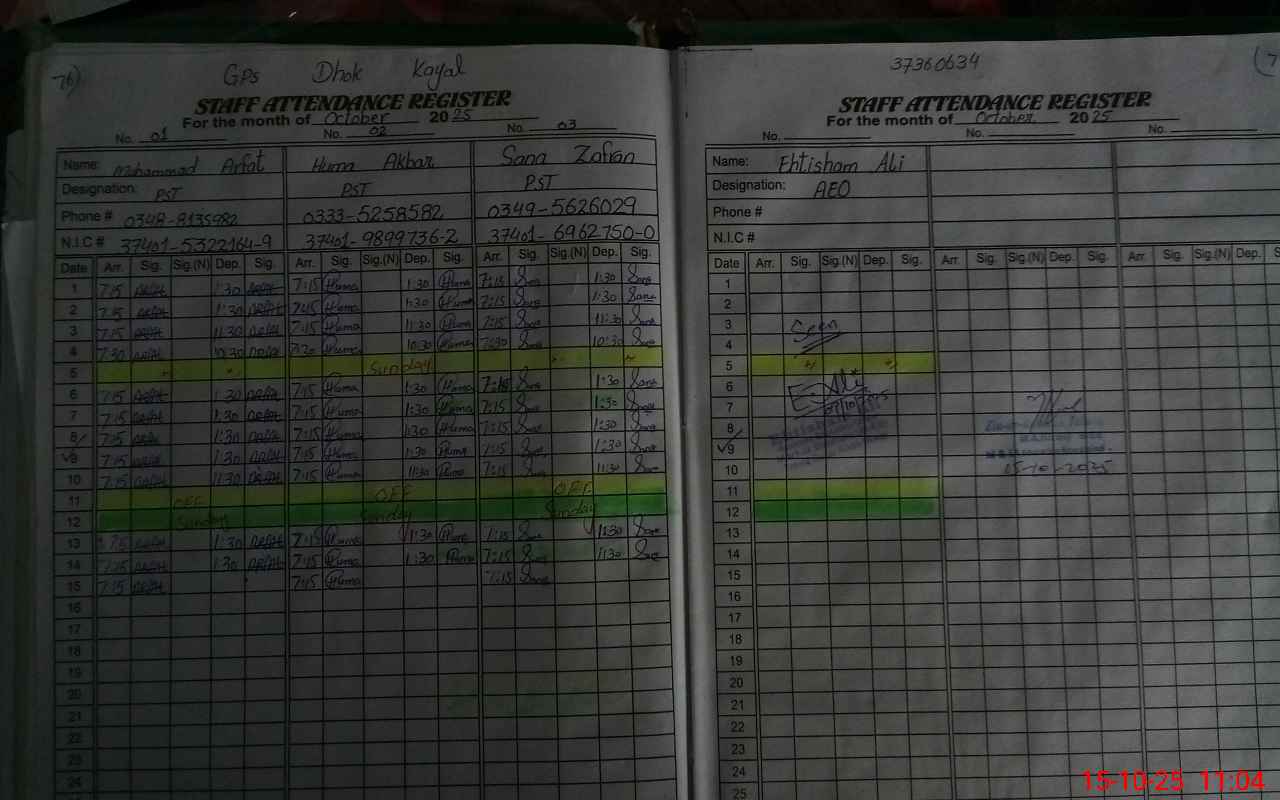 76)
GPS Dhok Kayal
STAFF ATTENDANCE REGISTER
For the month of October 2025
No. 01 No. 02 No. 03
Name: Muhammad Arfat Huma Akbar Sana Zafran
Designation: PST PST PST
Phone # 0348-8135982 0333-5258582 0349-5626029
N.I.C # 37401-5322164-9 37401-9899736-2 37401-6962750-0
Date Arr. Sig. Sig.(N) Dep. Sig. Arr. Sig. Sig.(N) Dep. Sig. Arr. Sig. Sig.(N) Dep. Sig.
1 7:15 Arfat 1:30 Arfat 7:15 Huma 1:30 Huma 7:15 Sana 1:30 Sana
2 7:15 Arfat 1:30 Arfat 7:15 Huma 1:30 Huma 7:15 Sana 1:30 Sana
3 7:15 Arfat 11:30 Arfat 7:15 Huma 11:30 Huma 7:15 Sana 11:30 Sana
4 7:30 Arfat 10:30 Arfat 7:30 Huma 10:30 Huma 7:30 Sana 10:30 Sana
5 Sunday
6 7:15 Arfat 1:30 Arfat 7:15 Huma 1:30 Huma 7:15 Sana 1:30 Sana
7 7:15 Arfat 1:30 Arfat 7:15 Huma 1:30 Huma 7:15 Sana 1:30 Sana
8 7:15 Arfat 1:30 Arfat 7:15 Huma 1:30 Huma 7:15 Sana 1:30 Sana
9 7:15 Arfat 1:30 Arfat 7:15 Huma 1:30 Huma 7:15 Sana 1:30 Sana
10 7:15 Arfat 11:30 Arfat 7:15 Huma 11:30 Huma 7:15 Sana 11:30 Sana
11 OFF OFF OFF
12 Sunday Sunday Sunday
13 7:15 Arfat 1:30 Arfat 7:15 Huma 1:30 Huma 7:15 Sana 1:30 Sana
14 7:15 Arfat 1:30 Arfat 7:15 Huma 1:30 Huma 7:15 Sana 1:30 Sana
15 7:15 Arfat 7:15 Huma 7:15 Sana
16
17
18
19
20
21
22
23
24
37360634
STAFF ATTENDANCE REGISTER
For the month of October 2025
No. No. No.
Name: Ehtisham Ali
Designation: AEO
Phone #
N.I.C #
Date Arr. Sig. Sig.(N) Dep. Sig. Arr. Sig. Sig.(N) Dep. Sig. Arr. Sig. Sig.(N) Dep.
1
2
3 Seen
4
5
6 E. Ali
7 07/10/2025
8
9
10 15-10-2025
11
12
13
14
15
16
17
18
19
20
21
22
23
24
25
15-10-25 11:04